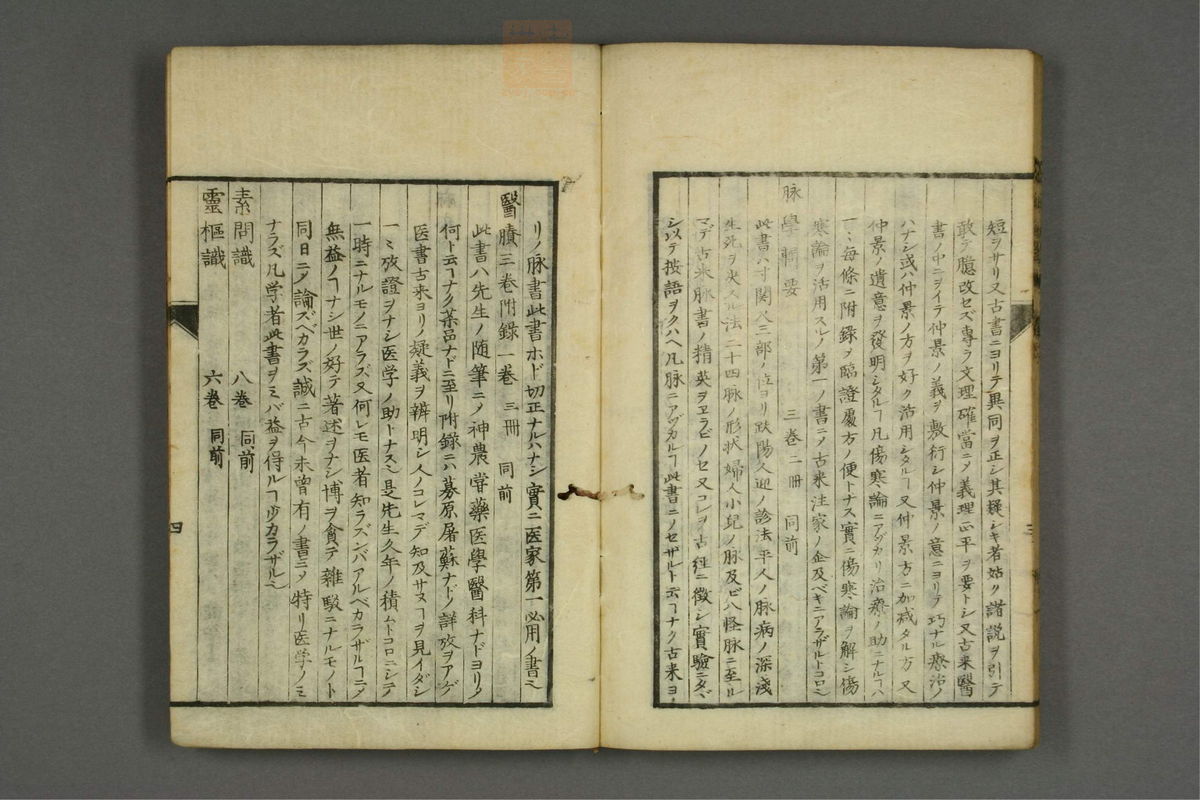 短ヲサリ又古書ニヨリテ異同ヲ正シ其疑シキ者姑ク諸説ヲ引テ
敢テ臆改セズ専ラ文理確當ニメ義理正平ヲ要トシ又古来醫
書中ニヲイテ仲景ノ義ヲ敷衍シ仲景ノ意ニヨリテ巧ナル療治ノ
ハナシ或ハ仲景ノ方ヲ好ク活用シタルヿ又仲景方ニ加减タル方又
仲景ノ遺意ヲ發明シタルヿ凡傷寒論ニアヅカリ治療ノ助ニナルヿハ
一〻毎條ニ附録ヲ臨證處方ノ便トナス實ニ傷寒論ヲ解シ傷
寒論ヲ活用スルノ第一ノ書ニメ古来注家ノ企及ベキニアラザルトコロ也
脉學輯要 三巻二冊 同前
此書ハ寸関尺三部ノ位ヨリ趺陽人迎ノ診法平人ノ脉病ノ深淺
生死ヲ决スル法二十四脉ノ形状婦人小兒ノ脉及ビ八怪脉ニ至ル
マデ古来脉書ノ精英ヲヱラビノセ又コレヲ古経ニ徴シ實驗ニタヾ
シ以テ按語ヲクハヘ凡脉ニアヅカルヿ此書ニノセザルト云ヿナク古来ヨ
リノ脉書此書ホド切正ナルハナシ實ニ医家第一必用ノ書也
醫賸三巻附録一巻 三冊 同前
此書ハ先生ノ随筆ニメ神農甞藥医學醫科ナドヨリ
何ト云ヿナク菜品ナドニ至リ附録ニハ募原屠蘇ナドノ詳攷ヲアゲ
医書古来ヨリノ疑義ヲ辨明シ人ノコレマデ知及サヌヿヲ見イダシ
一〻攷證ヲナシ医学ノ助トナス也是先生久年ノ積ムトコロニシテ
一時ニナルモノニアラズ又何レモ医者知ラズンバアルベカラザルヿニメ
無益ノヿナシ世ノ好テ著述ヲナシ博ヲ貪テ雜駁ニナルモノト
同日ニメ論ズベカラズ誠ニ古今未曾有ノ書ニメ特リ医学ノミ
ナラズ凡学者此書ヲミバ益ヲ得ルヿ少カラザル也
素問識 八巻 同前
靈樞識 六巻 同前
四